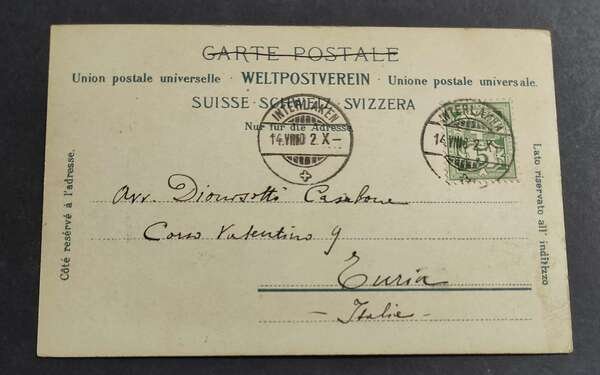 CARTE POSTALE
Union postale universelle · WELTPOSTVEREIN · Unione postale universale.
SUISSE · SCHWEIZ · SVIZZERA
Nur für die Adresse
INTERLAKEN
14.VIII 2.X
INTERLAKEN
14.VIII 2.X
5
Côté resérvé à l'adresse.
Avv. Casalone
Corso Valentino 9
Turin
- Italie -
Lato riservato all indirizzo